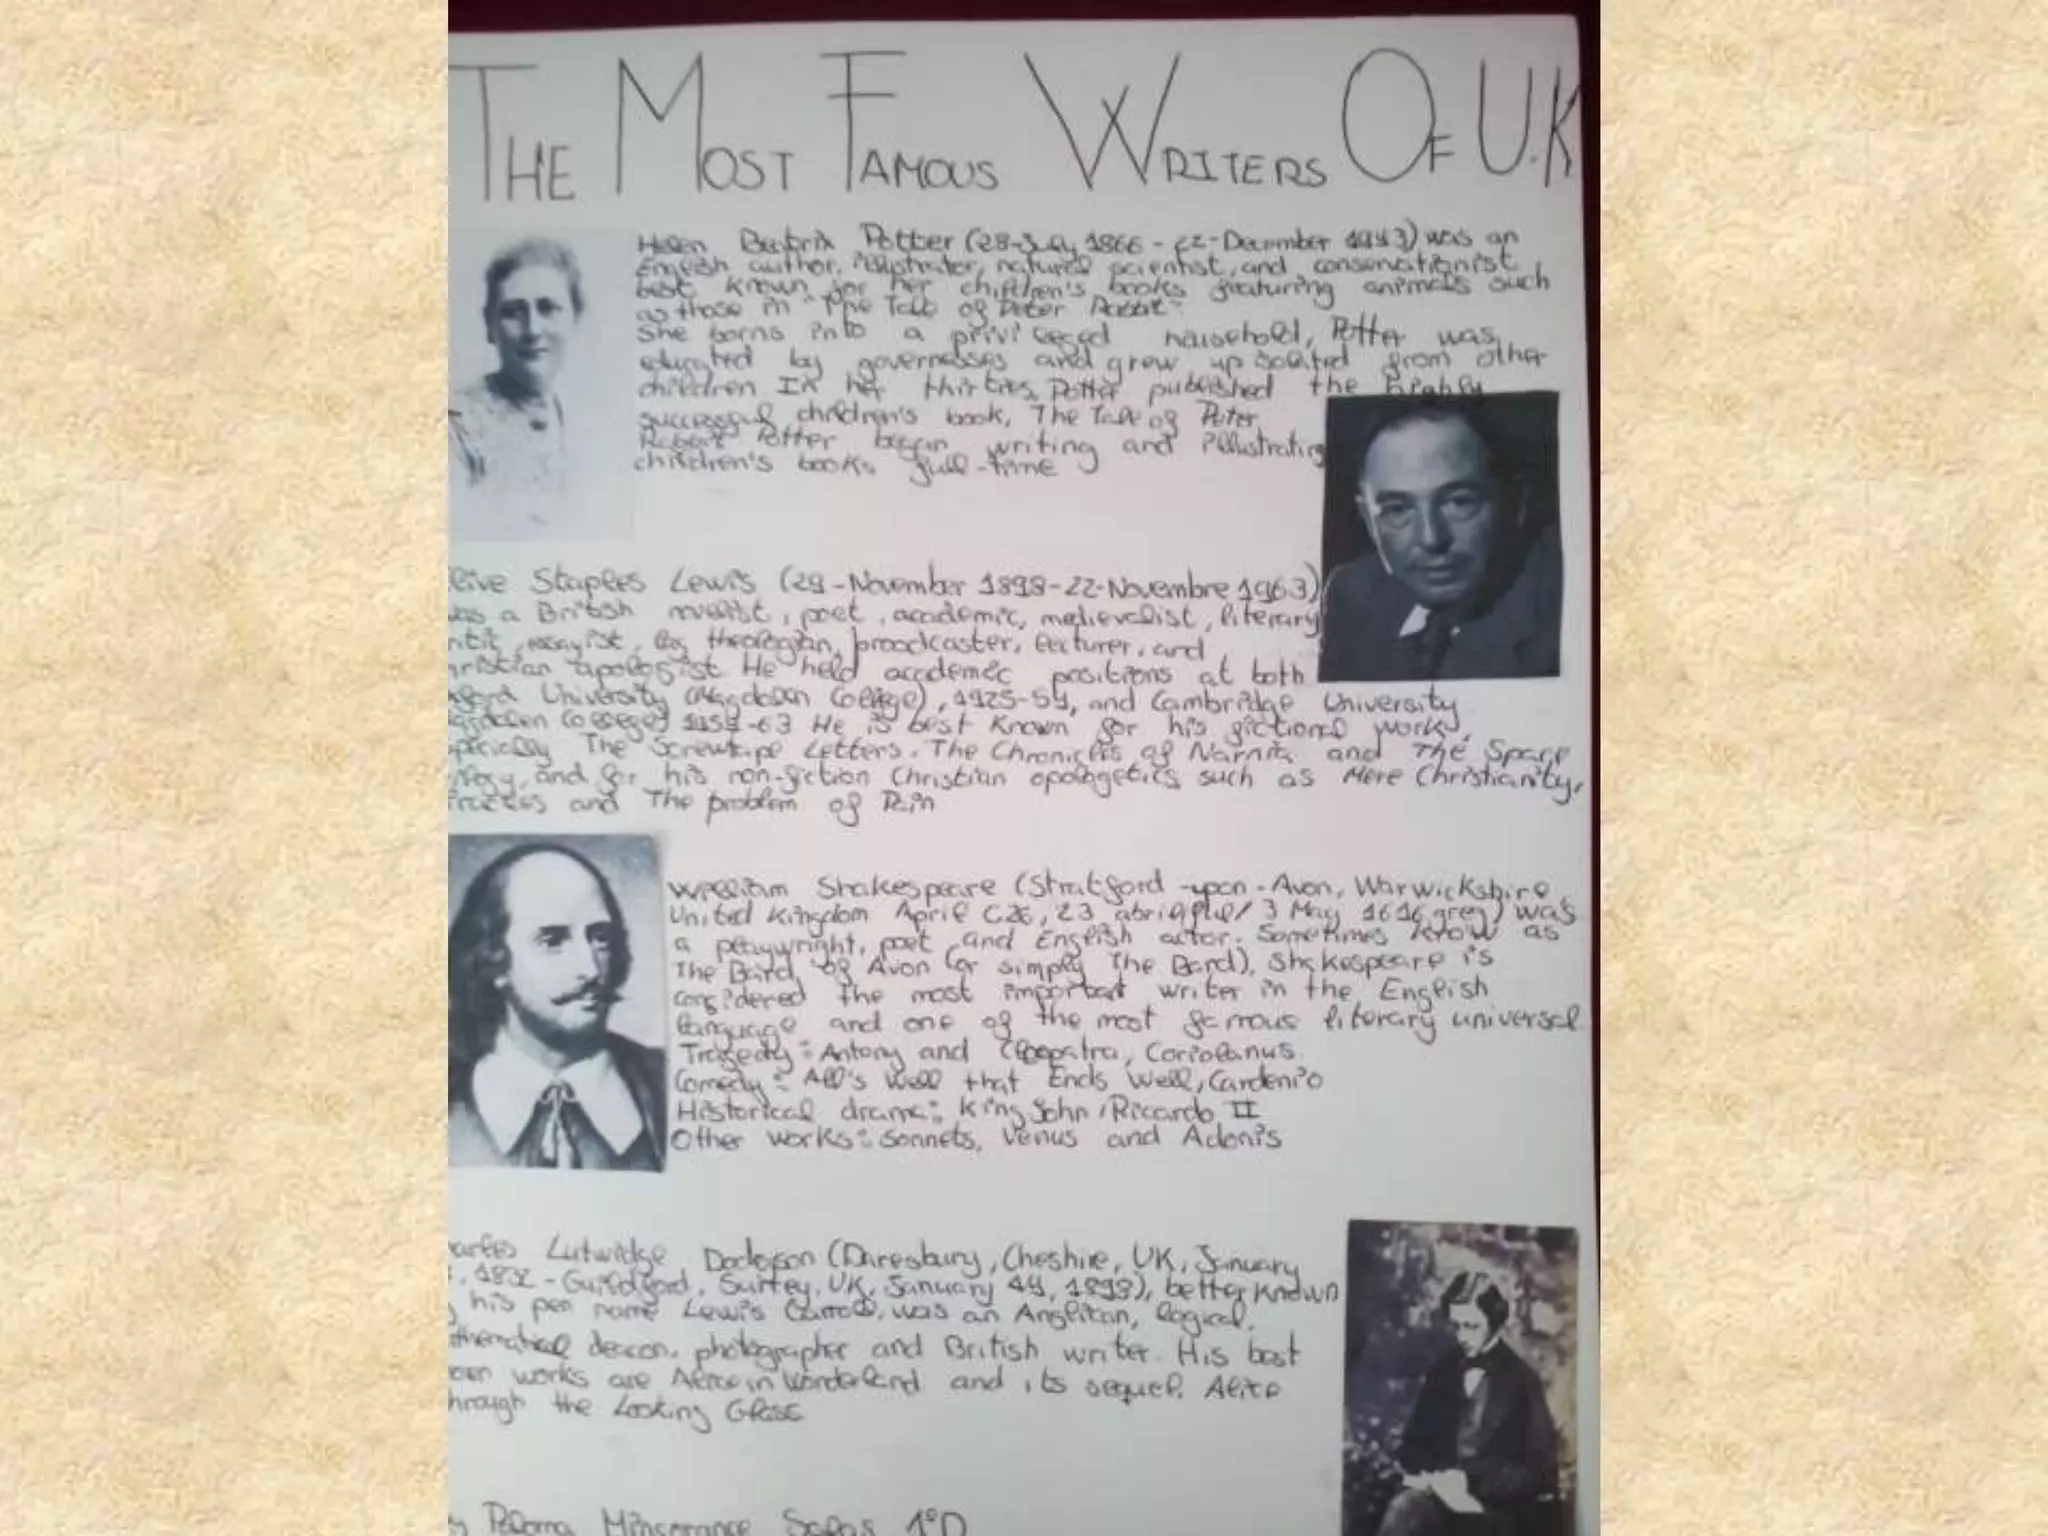 THE MOST FAMOUS WRITERS OF U.K
Helen Beatrix Potter (28-July 1866 - 22-December 1943) was an
English author, illustrator, natural scientist, and conservationist
best known for her children's books featuring animals such
as those in "The Tale of Peter Rabbit"
She borns into a privileged household, Potter was
educated by governesses and grew up isolated from other
children In her thirties, Potter published the highly
successful children's book, The Tale of Peter
Potter began writing and illustrating
children's books full-time
live Staples Lewis (29-November 1898-22-Novembre 1963)
as a British novelist, poet, academic, medievalist, literary
ritic, essayist, lay theologian, broadcaster, lecturer, and
hristian apologist He held academic positions at both
xford University (Magdalen College), 1925-54, and Cambridge University
agdalen College) -63 He is best known for his fictional work,
specially The Screwtape Letters. The Chronicles of Narnia and The Space
and for his non-fiction Christian apologetics such as Mere Christianity,
and The problem of Pain
William Shakespeare (Stratford-upon-Avon, Warwickshire,
United Kingdom April C26, 23 3 May 1616 greg) was
a playwright, poet and English actor. Sometimes know as
The Bard of Avon (or simply The Bard), Shakespeare is
considered the most important writer in the English
language and one of the most famous literary universal
Tragedy: Antony and Cleopatra, Coriolanus.
Comedy: All's Well that Ends Well, Cardenio
Historical drama: King John, Ricardo II
Other works: Sonnets, Venus and Adonis
arles Lutwidge Dodgson (Daresbury, Cheshire, UK, January
, 1832 - Guildford, Surrey, UK, January 14, 1898), better known
y his pen name Lewis Carroll, was an Anglican, logical,
athematical deacon, photographer and British writer. His best
own works are Alice in Wonderland and its sequel, Alice
hrough the Looking Glass
y Paloma Salas 1ºD